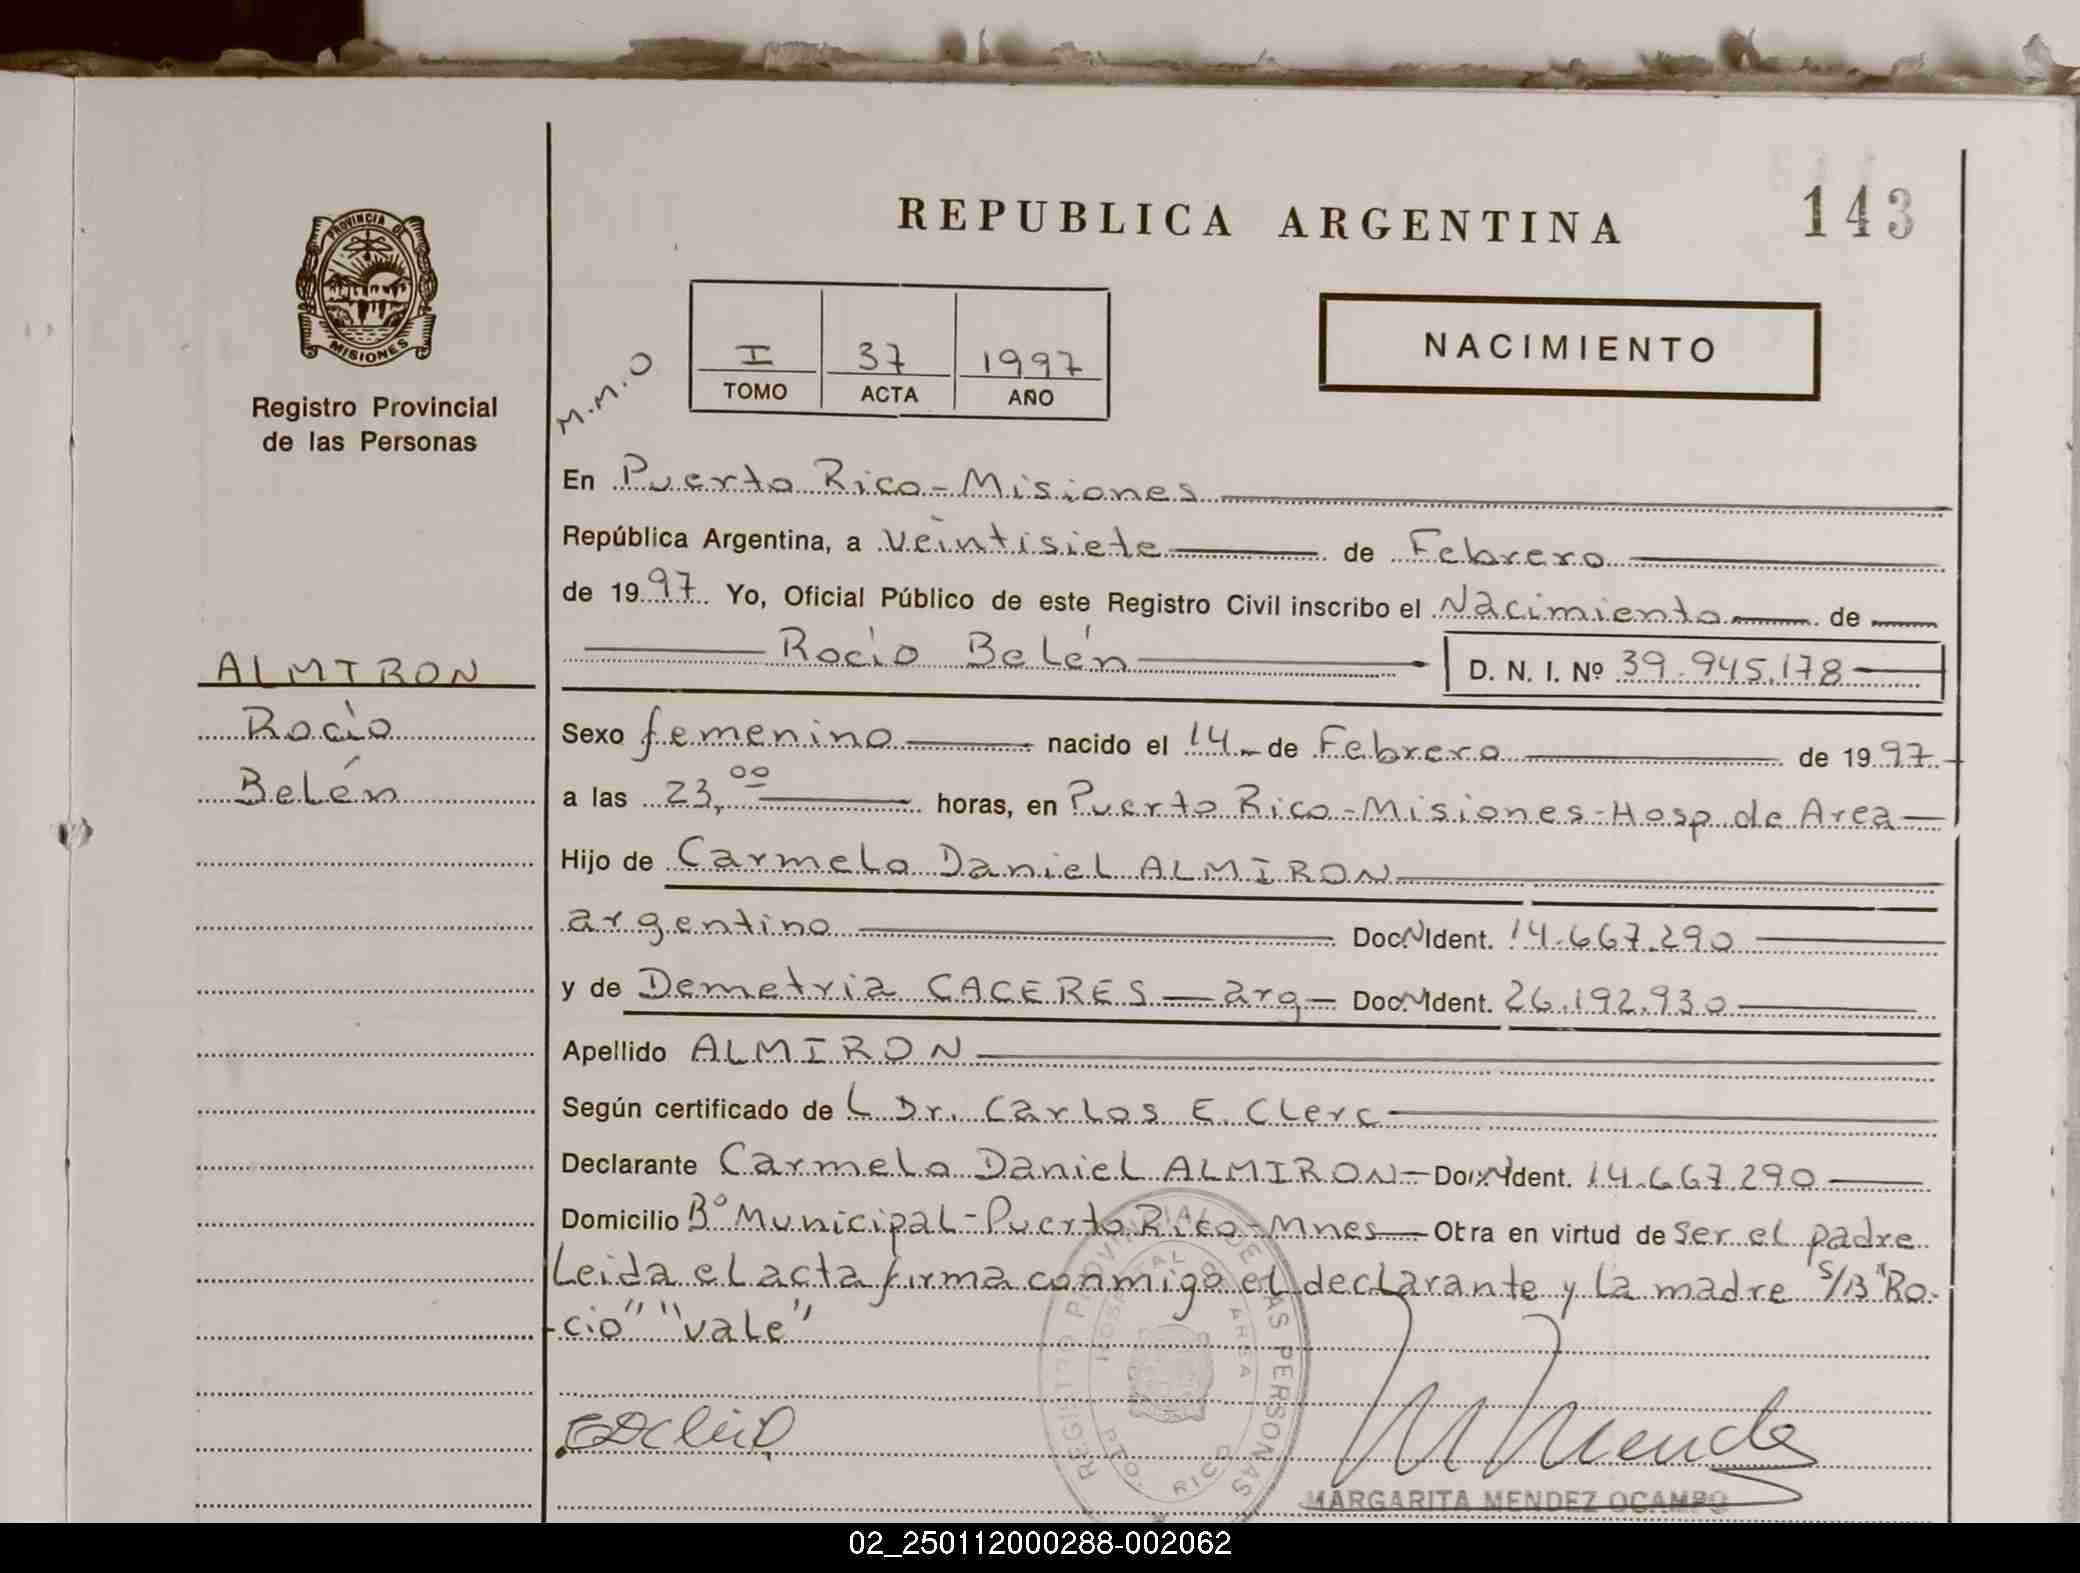 REPUBLICA ARGENTINA
143
PROVINCIA DE
MISIONES
Registro Provincial
de las Personas
M.M.O
I 37 1997
TOMO ACTA AÑO
NACIMIENTO
En Puerto Rico-Misiones
República Argentina, a veintisiete de Febrero
de 1997 Yo, Oficial Público de este Registro Civil inscribo el Nacimiento de
Rocío Belén D. N. I. Nº 39.945.178
ALMIRON
Rocío
Belén
Sexo femenino nacido el 14 de Febrero de 1997
a las 23,00 horas, en Puerto Rico-Misiones-Hosp. de Area
Hijo de Carmelo Daniel ALMIRON
argentino Doc. N Ident. 14.667.290
y de Demetria CACERES arg Doc. N Ident. 26.192.930
Apellido ALMIRON
Según certificado de L Dr. Carlos E. Clerc
Declarante Carmelo Daniel ALMIRON Doc. N Ident. 14.667.290
Domicilio Bº Municipal-Puerto Rico-Mnes Obra en virtud de ser el padre
Leida el acta firma conmigo el declarante y la madre S/B "Ro-
-cío" "vale"
REGISTRO PROVINCIAL DE LAS PERSONAS
HOSPITAL DE AREA
PTO. RICO
MARGARITA MENDEZ OCAMPO
02_250112000288-002062